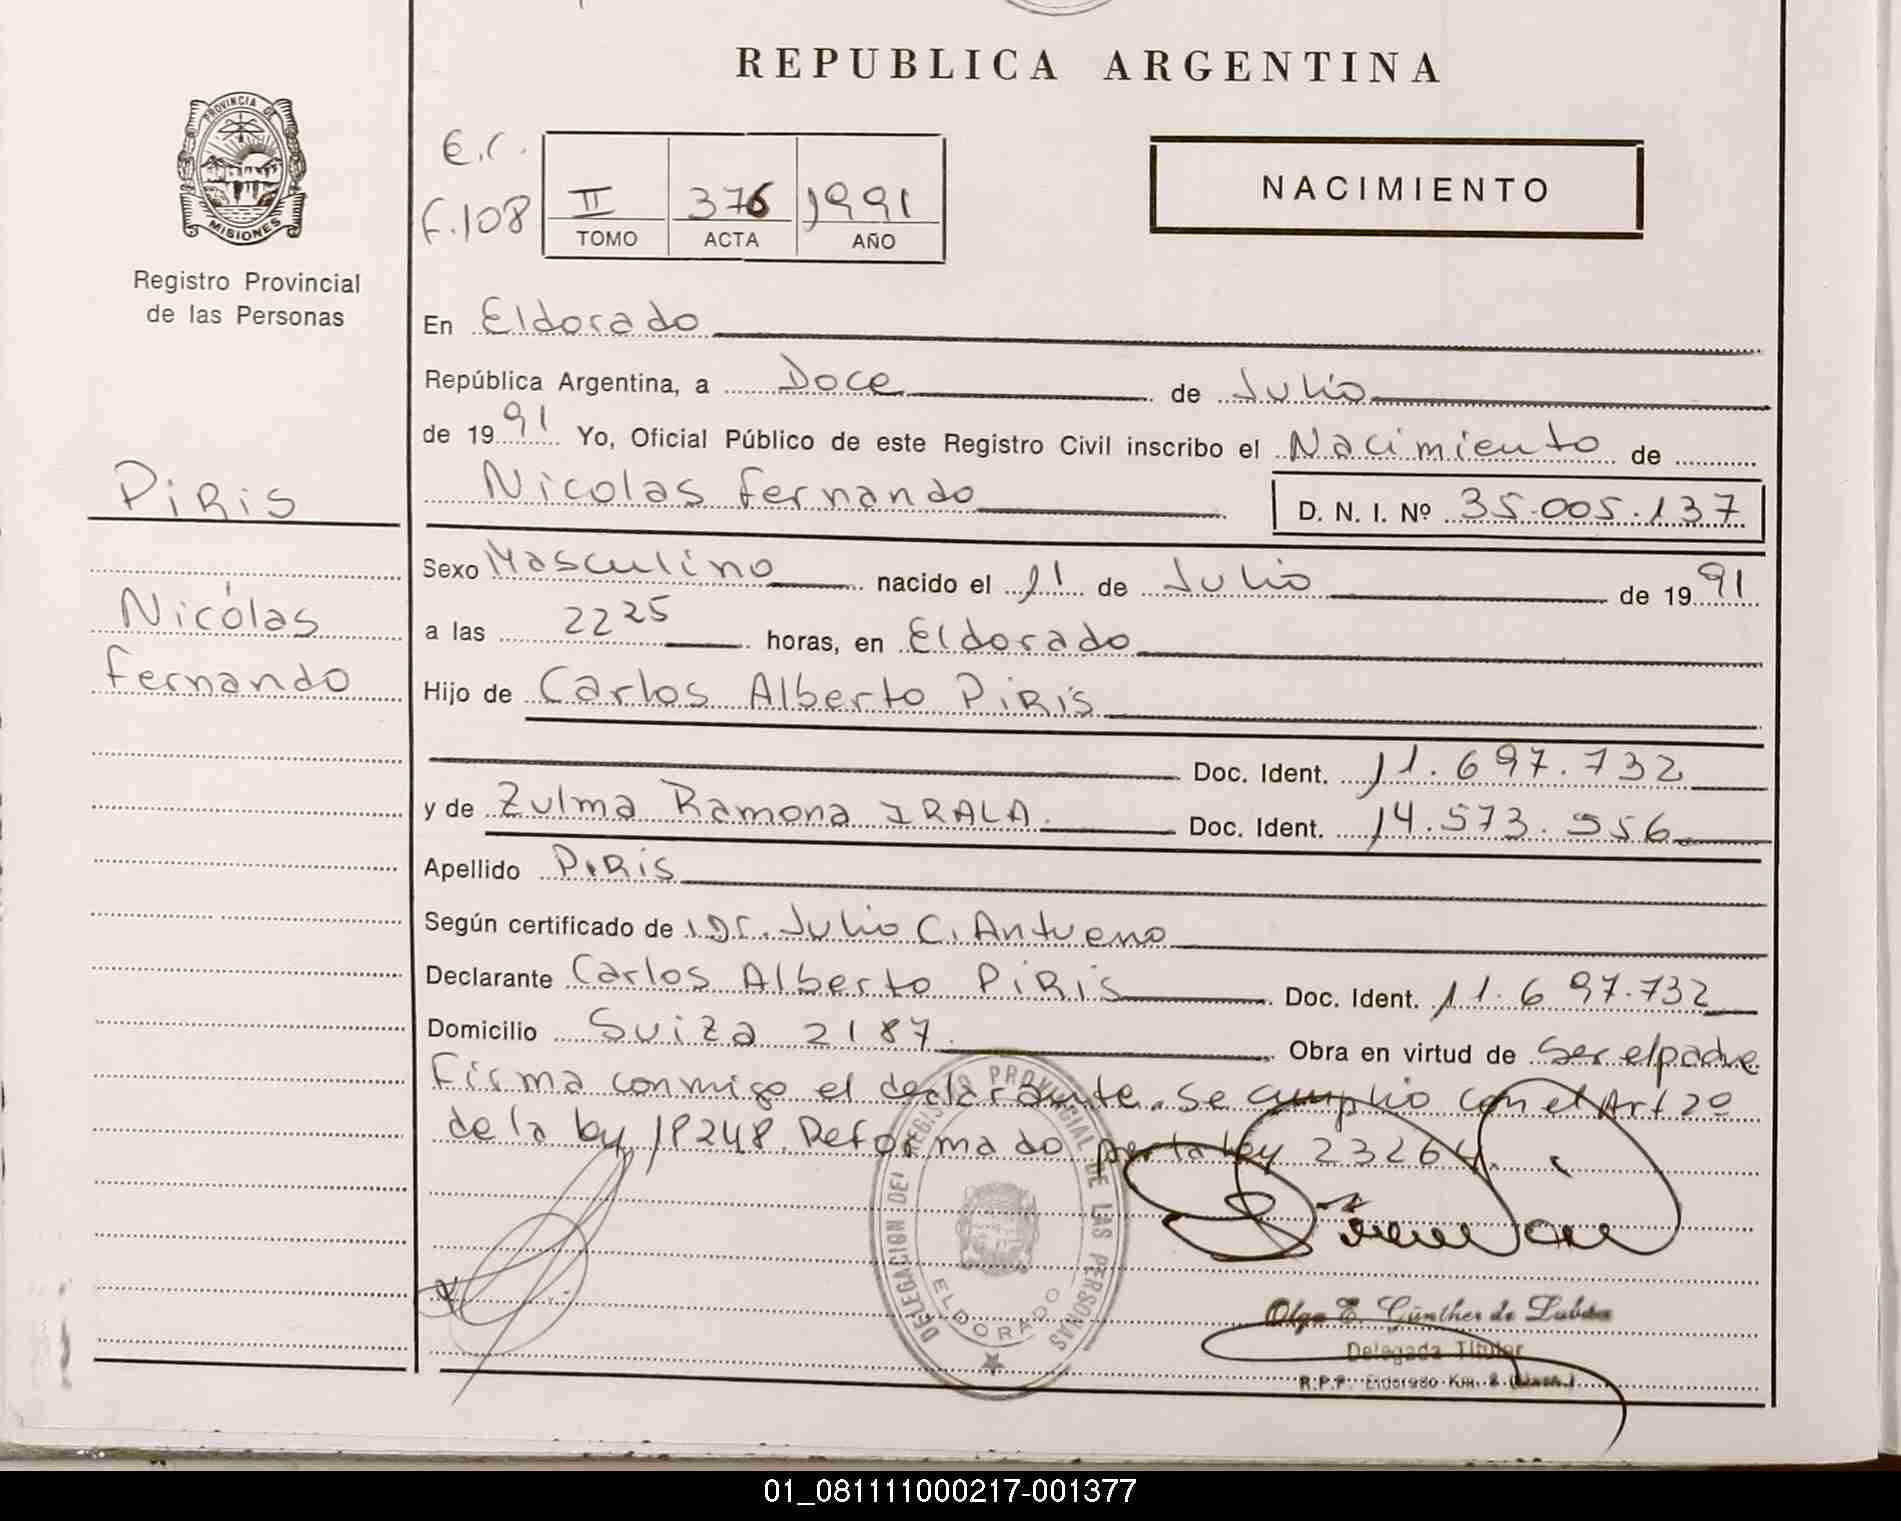 REPUBLICA ARGENTINA
PROVINCIA DE
MISIONES
Registro Provincial
de las Personas
E.C.
F.108
II 376 1991
TOMO ACTA AÑO
NACIMIENTO
En Eldorado
República Argentina, a Doce de Julio
de 1991 Yo, Oficial Público de este Registro Civil inscribo el Nacimiento de
Nicolas Fernando D. N. I. Nº 35.005.137
PiRis
Nicólas
Fernando
Sexo Masculino nacido el 11 de Julio de 1991
a las 22 25 horas, en Eldorado
Hijo de Carlos Alberto PiRis
Doc. Ident. 11.697.732
y de Zulma Ramona IRALA. Doc. Ident. 14.573.556
Apellido PiRis
Según certificado de Dr. Julio C. Antueno
Declarante Carlos Alberto PiRis Doc. Ident. 11.697.732
Domicilio Suiza 2187. Obra en virtud de Ser el padre
Firma conmigo el declarante. Se amplio con el Art 2º
de la ley 18248. Reformado por la ley 23264.
DELEGACION DEL REGISTRO PROVINCIAL DE LAS PERSONAS
ELDORADO
Olga E. Günther de
Delegada Titular
R.P.P. Eldorado Km.
01_081111000217-001377